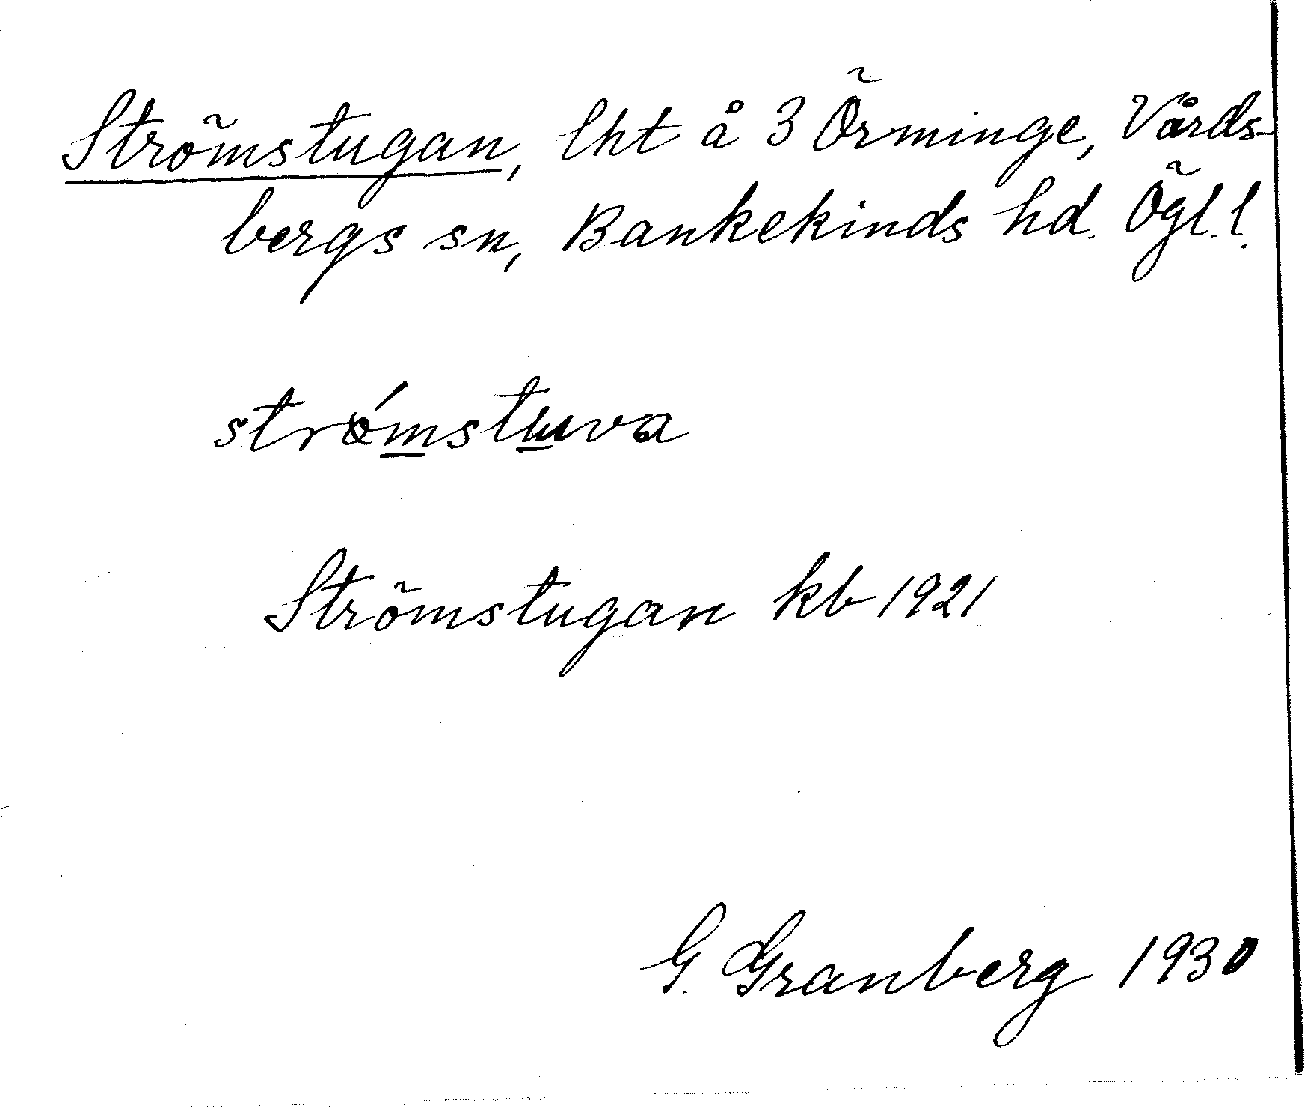 Strömstugan, lht å 3 Örminge, Vårds-
bergs sn, Bankekinds hd. Ögl. l.
strǿmstuva
Strömstugan kb 1921
G. Granberg 1930